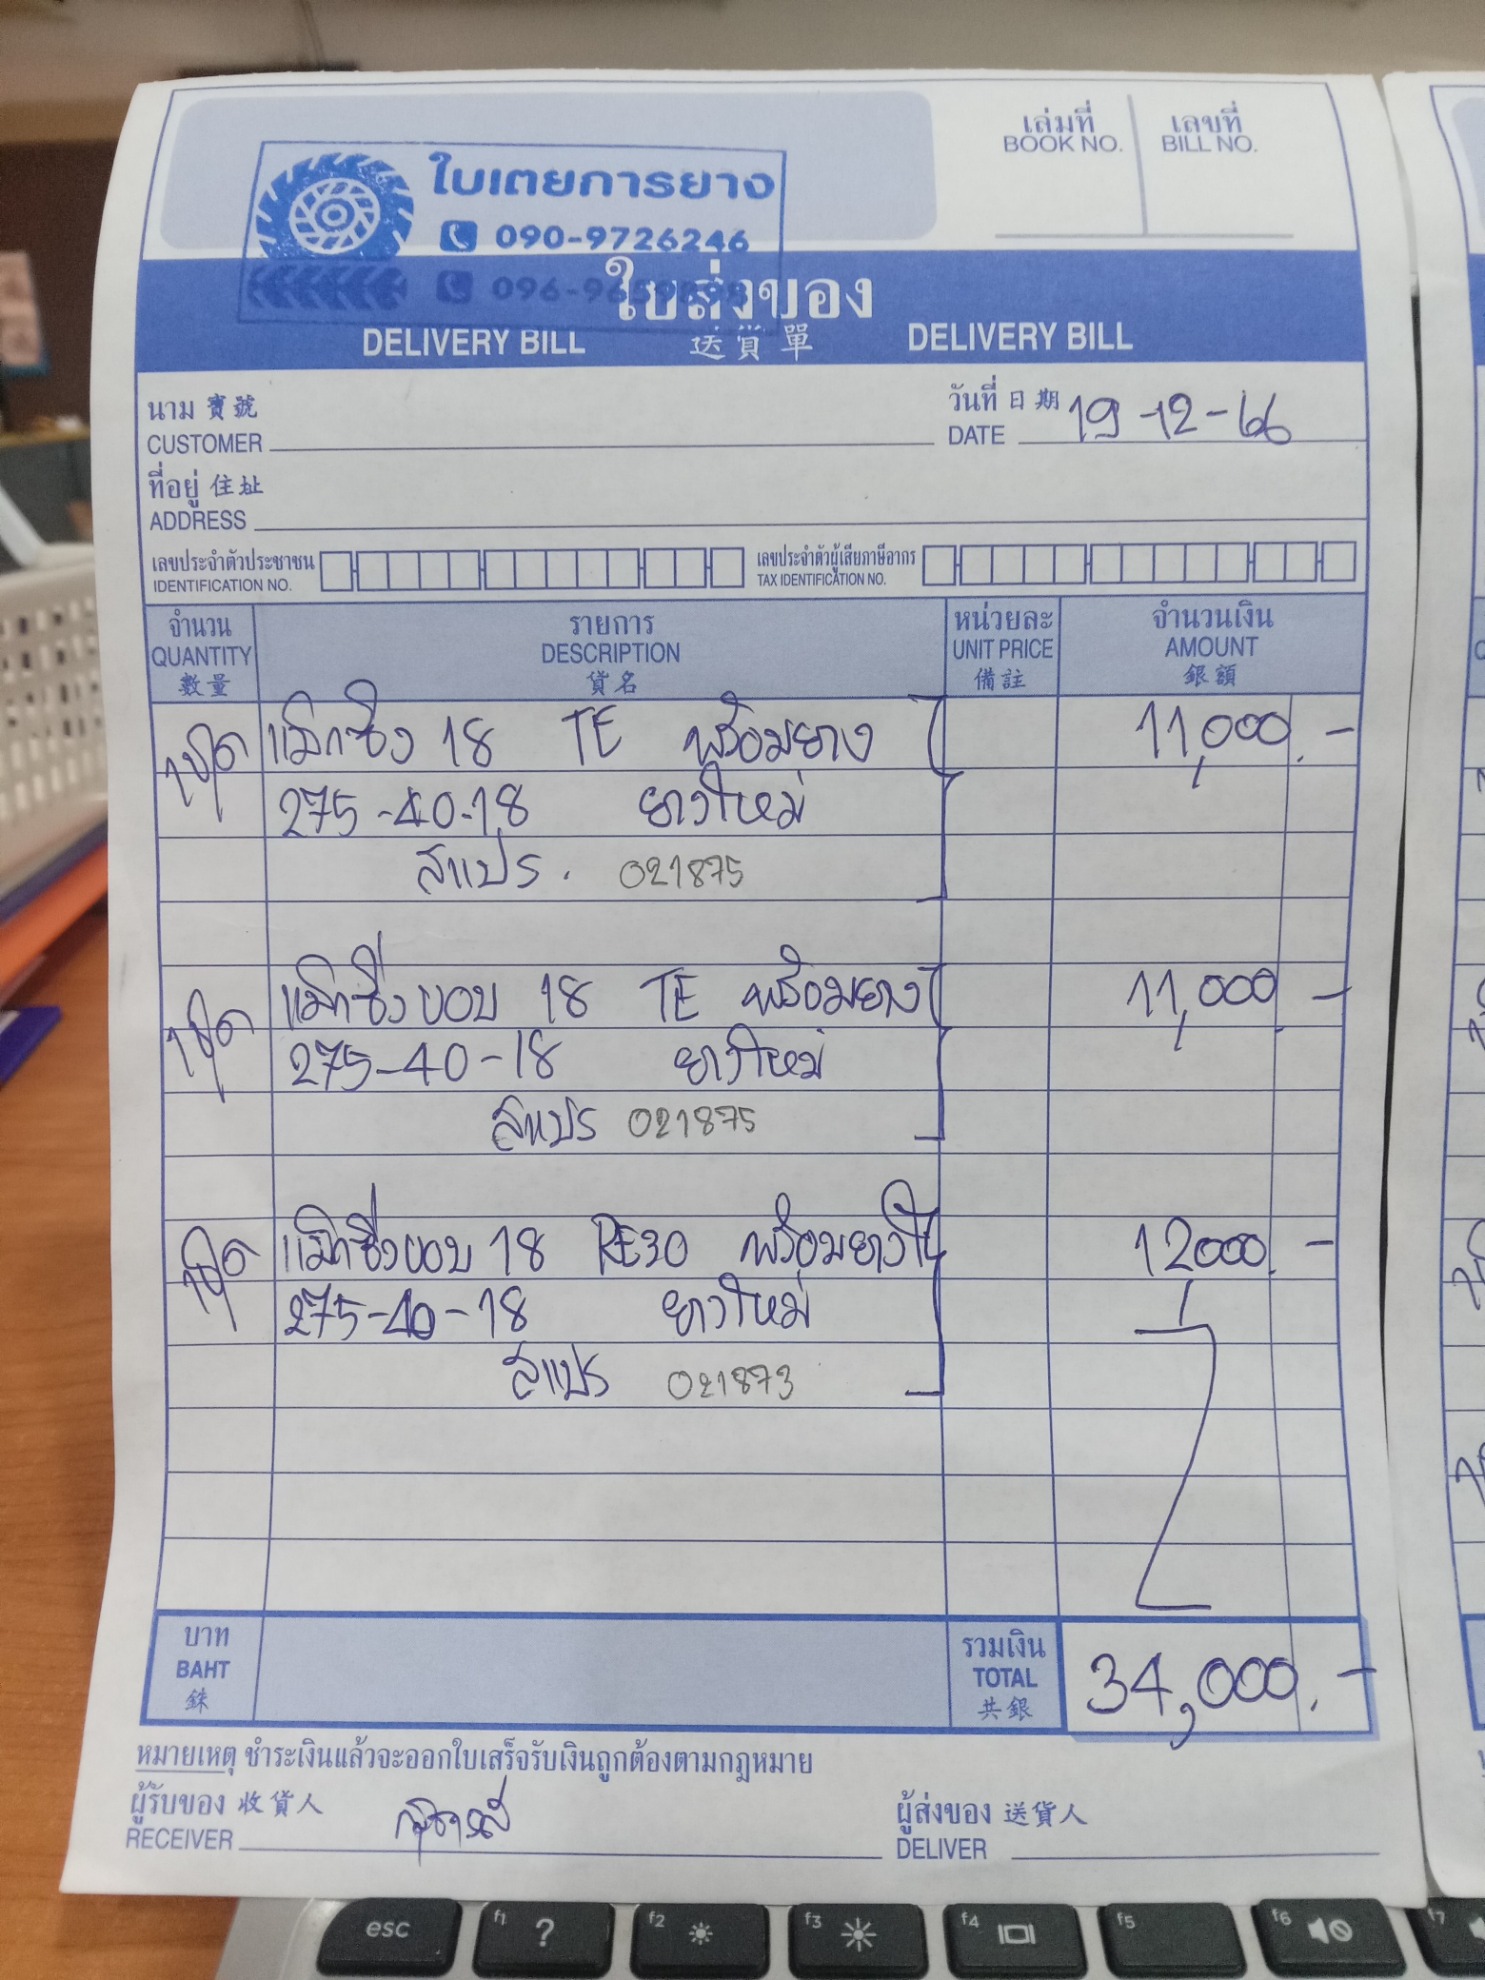 เล่มที่ เลขที่
BOOK NO. BILL NO.
ใบเตยการยาง
090-9726246
ใบส่งของ
DELIVERY BILL 送貨單 DELIVERY BILL
นาม 寶號 วันที่ 日期 19-12-66
CUSTOMER DATE
ที่อยู่ 住址
ADDRESS
เลขประจำตัวประชาชน เลขประจำตัวผู้เสียภาษีอากร
IDENTIFICATION NO. TAX IDENTIFICATION NO.
จำนวน รายการ หน่วยละ จำนวนเงิน
QUANTITY DESCRIPTION UNIT PRICE AMOUNT
數量 貨名 備註 銀額
1ชุด แม็กซิ่ง 18 TE พร้อมยาง 11,000.-
275-40-18 ยางใหม่
สแปร. 021875
1ชุด แม็กซิ่งขอบ 18 TE พร้อมยาง 11,000 -
275-40-18 ยางใหม่
สแปร 021875
1ชุด แม็กซิ่งขอบ 18 RE30 พร้อมยาง 12,000.-
275-40-18 ยางใหม่
สแปร 021873
บาท รวมเงิน
BAHT TOTAL 34,000.-
銖 共銀
หมายเหตุ ชำระเงินแล้วจะออกใบเสร็จรับเงินถูกต้องตามกฎหมาย
ผู้รับของ 收貨人 ผู้ส่งของ 送貨人
RECEIVER DELIVER
esc f1 ? f2 f3 f4 f5 f6 f7